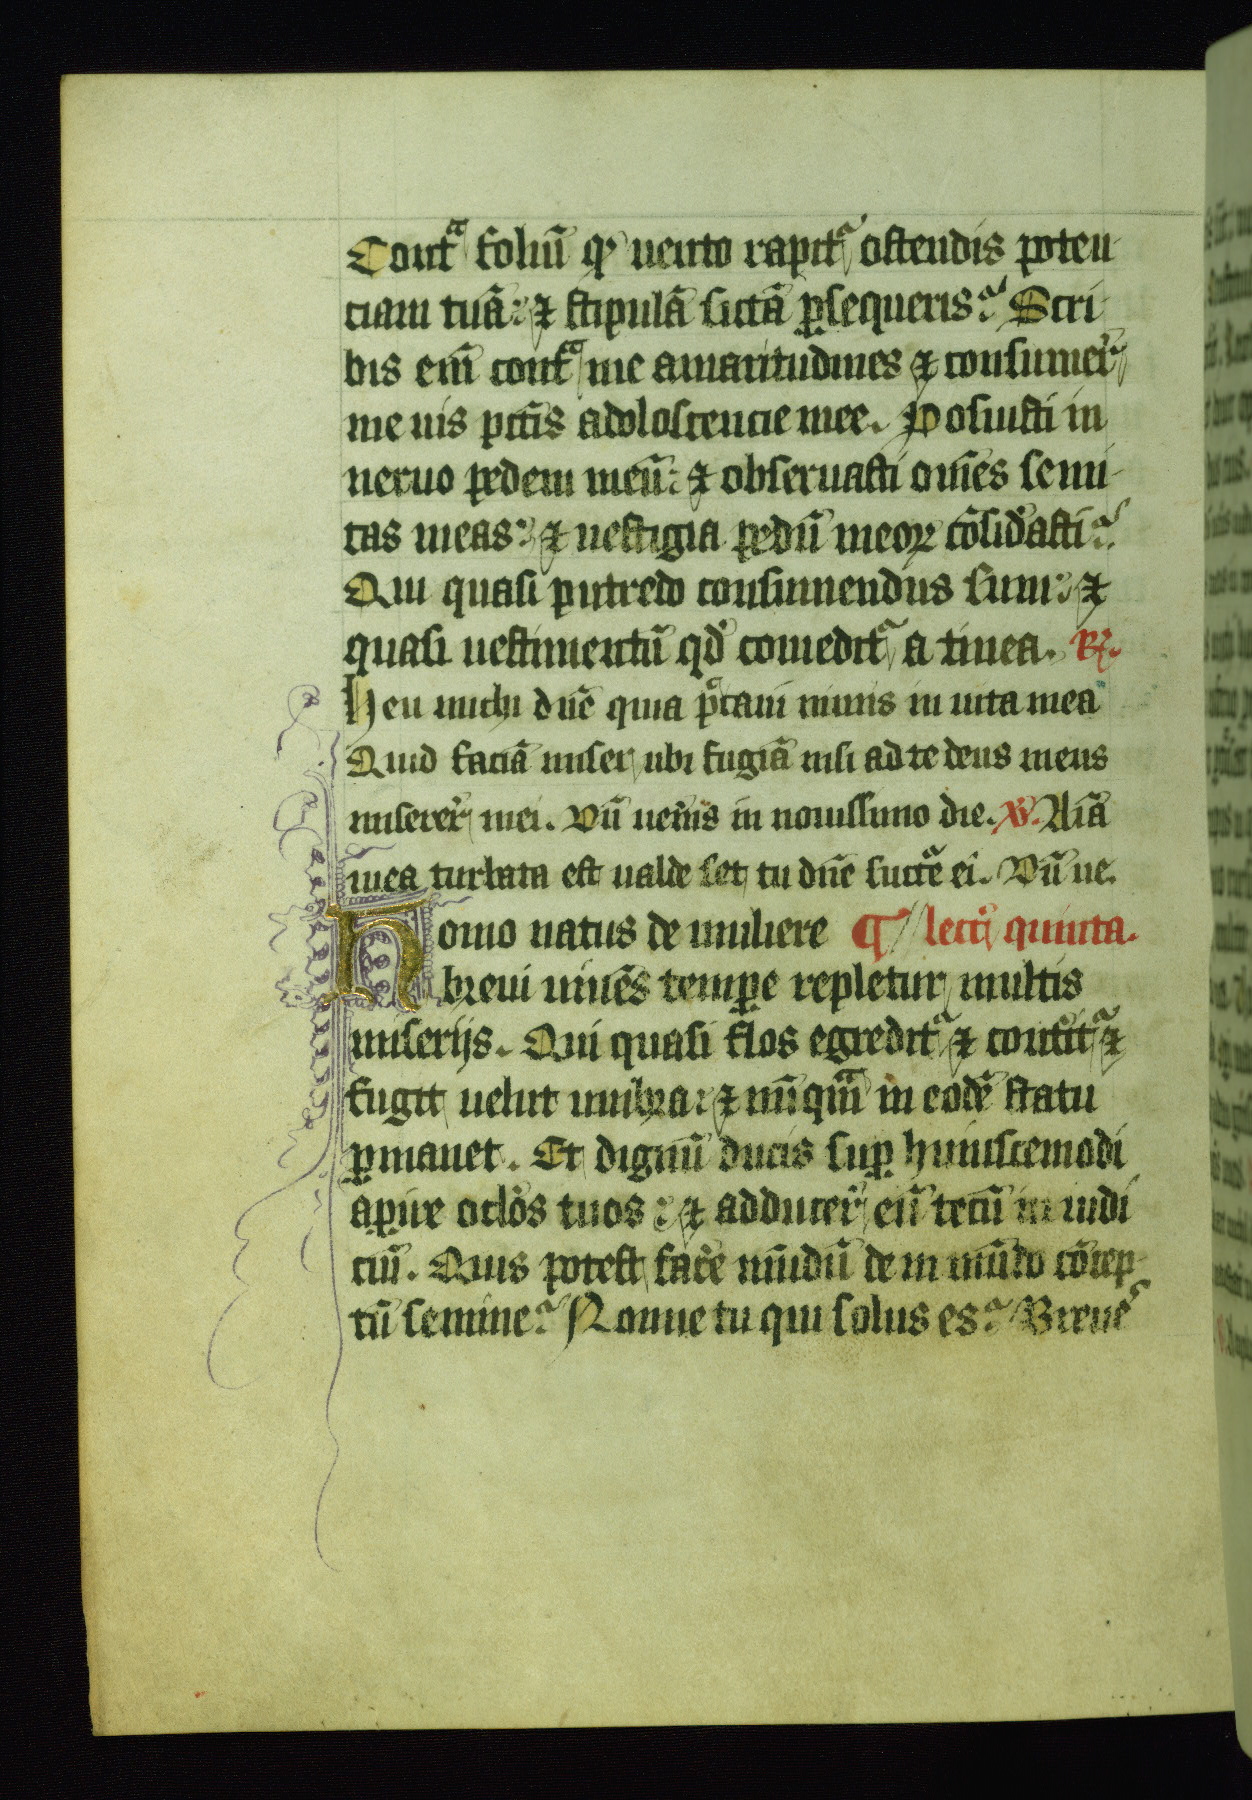 Contᵃ foliū qᵈ uento rapitᵃ ostendis poten
ciam tuā: ⁊ stipulā siccā ꝑsequeris? Scri
bis em̄ contᵃ me amaritudines ⁊ consumer̄
me uis pct̄is adoloscencie mee. Posuisti in
neruo pedem meū: ⁊ obseruasti om̄es semi
tas meas: ⁊ uestigia pedū meoꝝ cōsid̓asti?
Qui quasi putredo consumendus sum: ⁊
quasi uestimentū qd̓ comeditᵃ a tinea. R̷.
Heu michi dn̄e quia pͨcaui nimis in uita mea
Quid faciā miser ubi fugiā nisi ad te deus meus
miserer̄ mei. Dū uen̄is in nouissimo die. V̷. Aīa
mea turbata est ualde set tu dn̄e succͬe ei. Dū ue.
Homo natus de muliere ¶ lectͦ quinta.
breui uiuēs temꝑe repletur multis
miserijs. Qui quasi flos egreditᵃ ⁊ conteritᵃ ⁊
fugit uelut umbra: ⁊ nūqm̄ in eodē statu
ꝑmanet. Et dignū ducis suꝑ huiuscemodi
aꝑire oclo̓s tuos: ⁊ adducer̄ eū tecū in iudi
ciū. Quis potest fac̓e mūdū de in mūdo cōcep
tū semine? Nonne tu qui solus es? Breuē